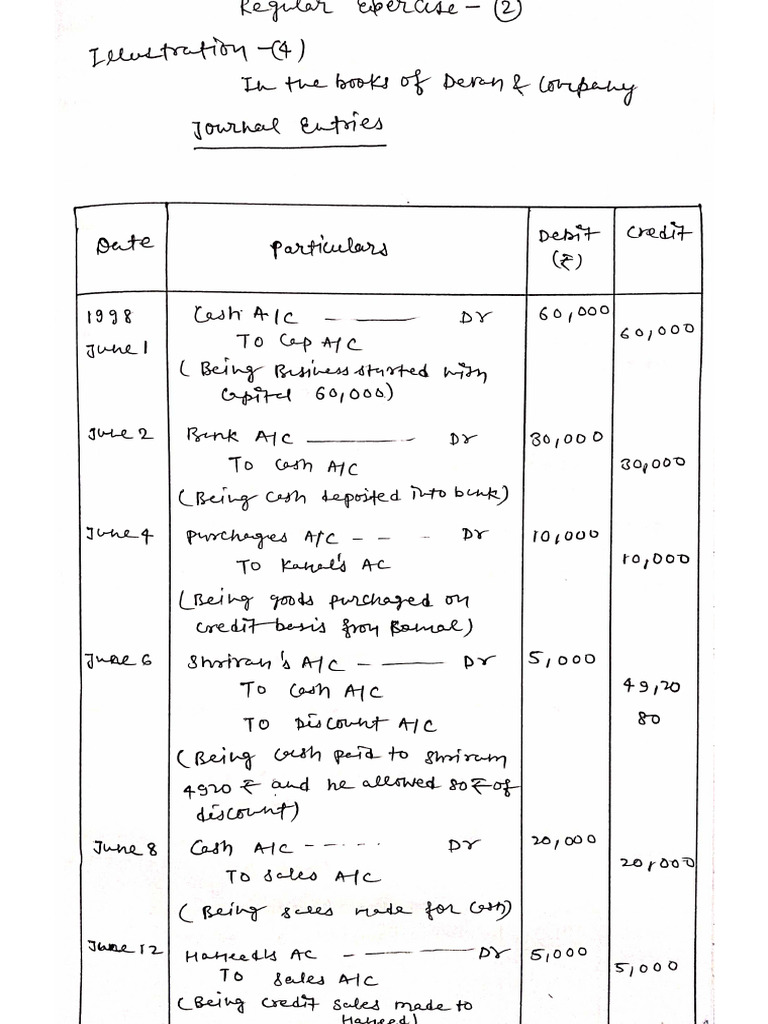 Regular Exercise - (2)
Illustration - (4)
In the books of Devan & Company
Journal Entries
Date Particulars Debit (₹) Credit
1998 Cash A/C Dr 60,000
June 1 To Cap A/C 60,000
(Being Business started with
Capital 60,000)
June 2 Bank A/C Dr 30,000
To Cash A/C 30,000
(Being Cash deposited into bank)
June 4 Purchages A/C - - - Dr 10,000
To Kamal's AC 10,000
(Being goods purchaged on
credit basis from Kamal)
June 6 Shriram's A/C - Dr 5,000
To Cash A/C 49,20
To Discount A/C 80
(Being Cash paid to Shriram
4920 ₹ and he allowed 80 ₹ of
discount)
June 8 Cash A/C - - - - - Dr 20,000
To Sales A/C 20,000
(Being sales made for Cash)
June 12 Hameed's AC - Dr 5,000
To Sales A/C 5,000
(Being Credit Sales made to
Hameed)